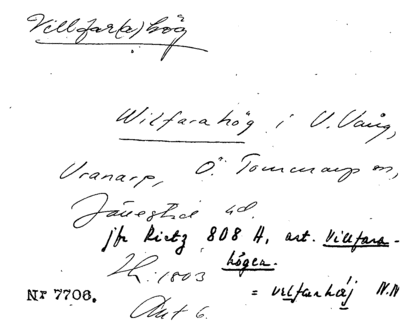 Villfar(a)hög
Wilfarahög i V. Vång,
Vranarp, Ö. Tommarp sn,
Järrestad hd.
jfr Rietz 808 A, art. Villfara-
högen.
1803
= vilfarhöj N.N
Nr 7706.
Akt 6.